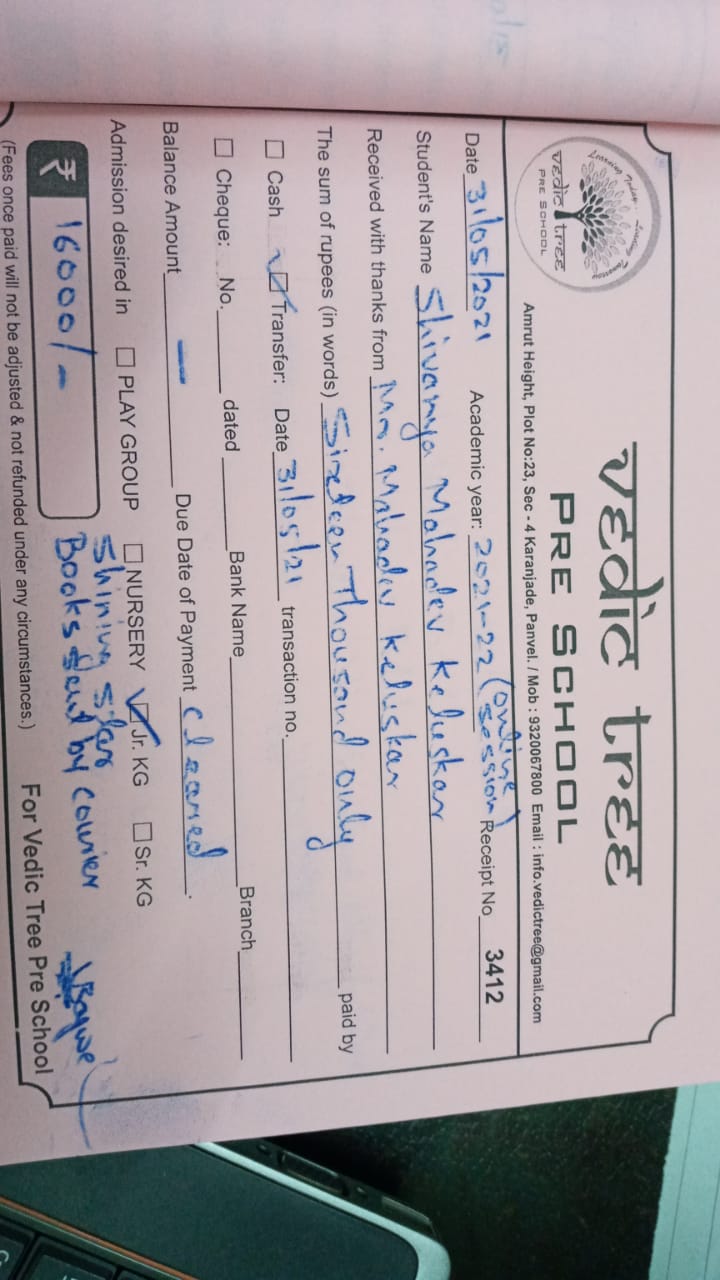 Learning Today - Leading Tomorrow
vedic tree
PRE SCHOOL
vedic tree
PRE SCHOOL
Amrut Height, Plot No:23, Sec - 4 Karanjade, Panvel. / Mob : 9320067800 Email : info.vedictree@gmail.com
Date 31/05/2021 Academic year: 2021-22 (online session) Receipt No 3412
Student's Name Shivanya Mahadev Keluskar
Received with thanks from Mr. Mahadev Keluskar
The sum of rupees (in words) Sixteen Thousand only paid by
☐ Cash ☑ Transfer: Date 31/05/21 transaction no.
☐ Cheque: No. dated Bank Name Branch
Balance Amount — Due Date of Payment cleared.
Admission desired in ☐ PLAY GROUP ☐ NURSERY ☑ Jr. KG ☐ Sr. KG
Shining star
₹ 16000/- Books sent by courier
For Vedic Tree Pre School
(Fees once paid will not be adjusted & not refunded under any circumstances.)